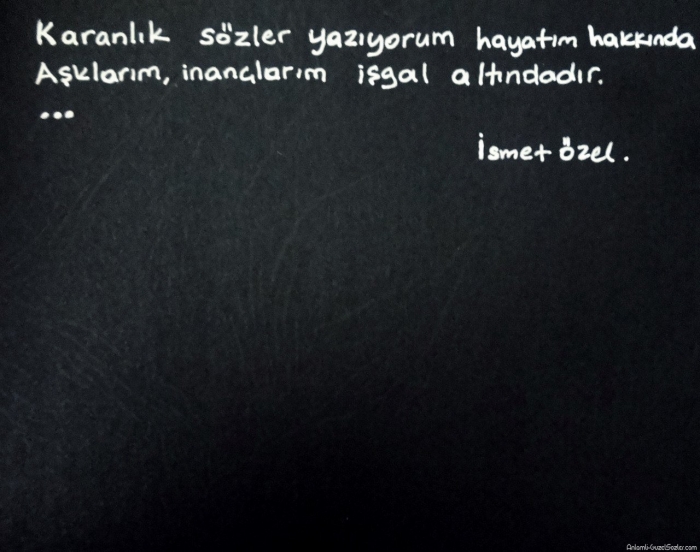 Karanlık sözler yazıyorum hayatım hakkında
Aşklarım, inançlarım işgal altındadır.
...
İsmet Özel.
Anlamli-GuzelSozler.com